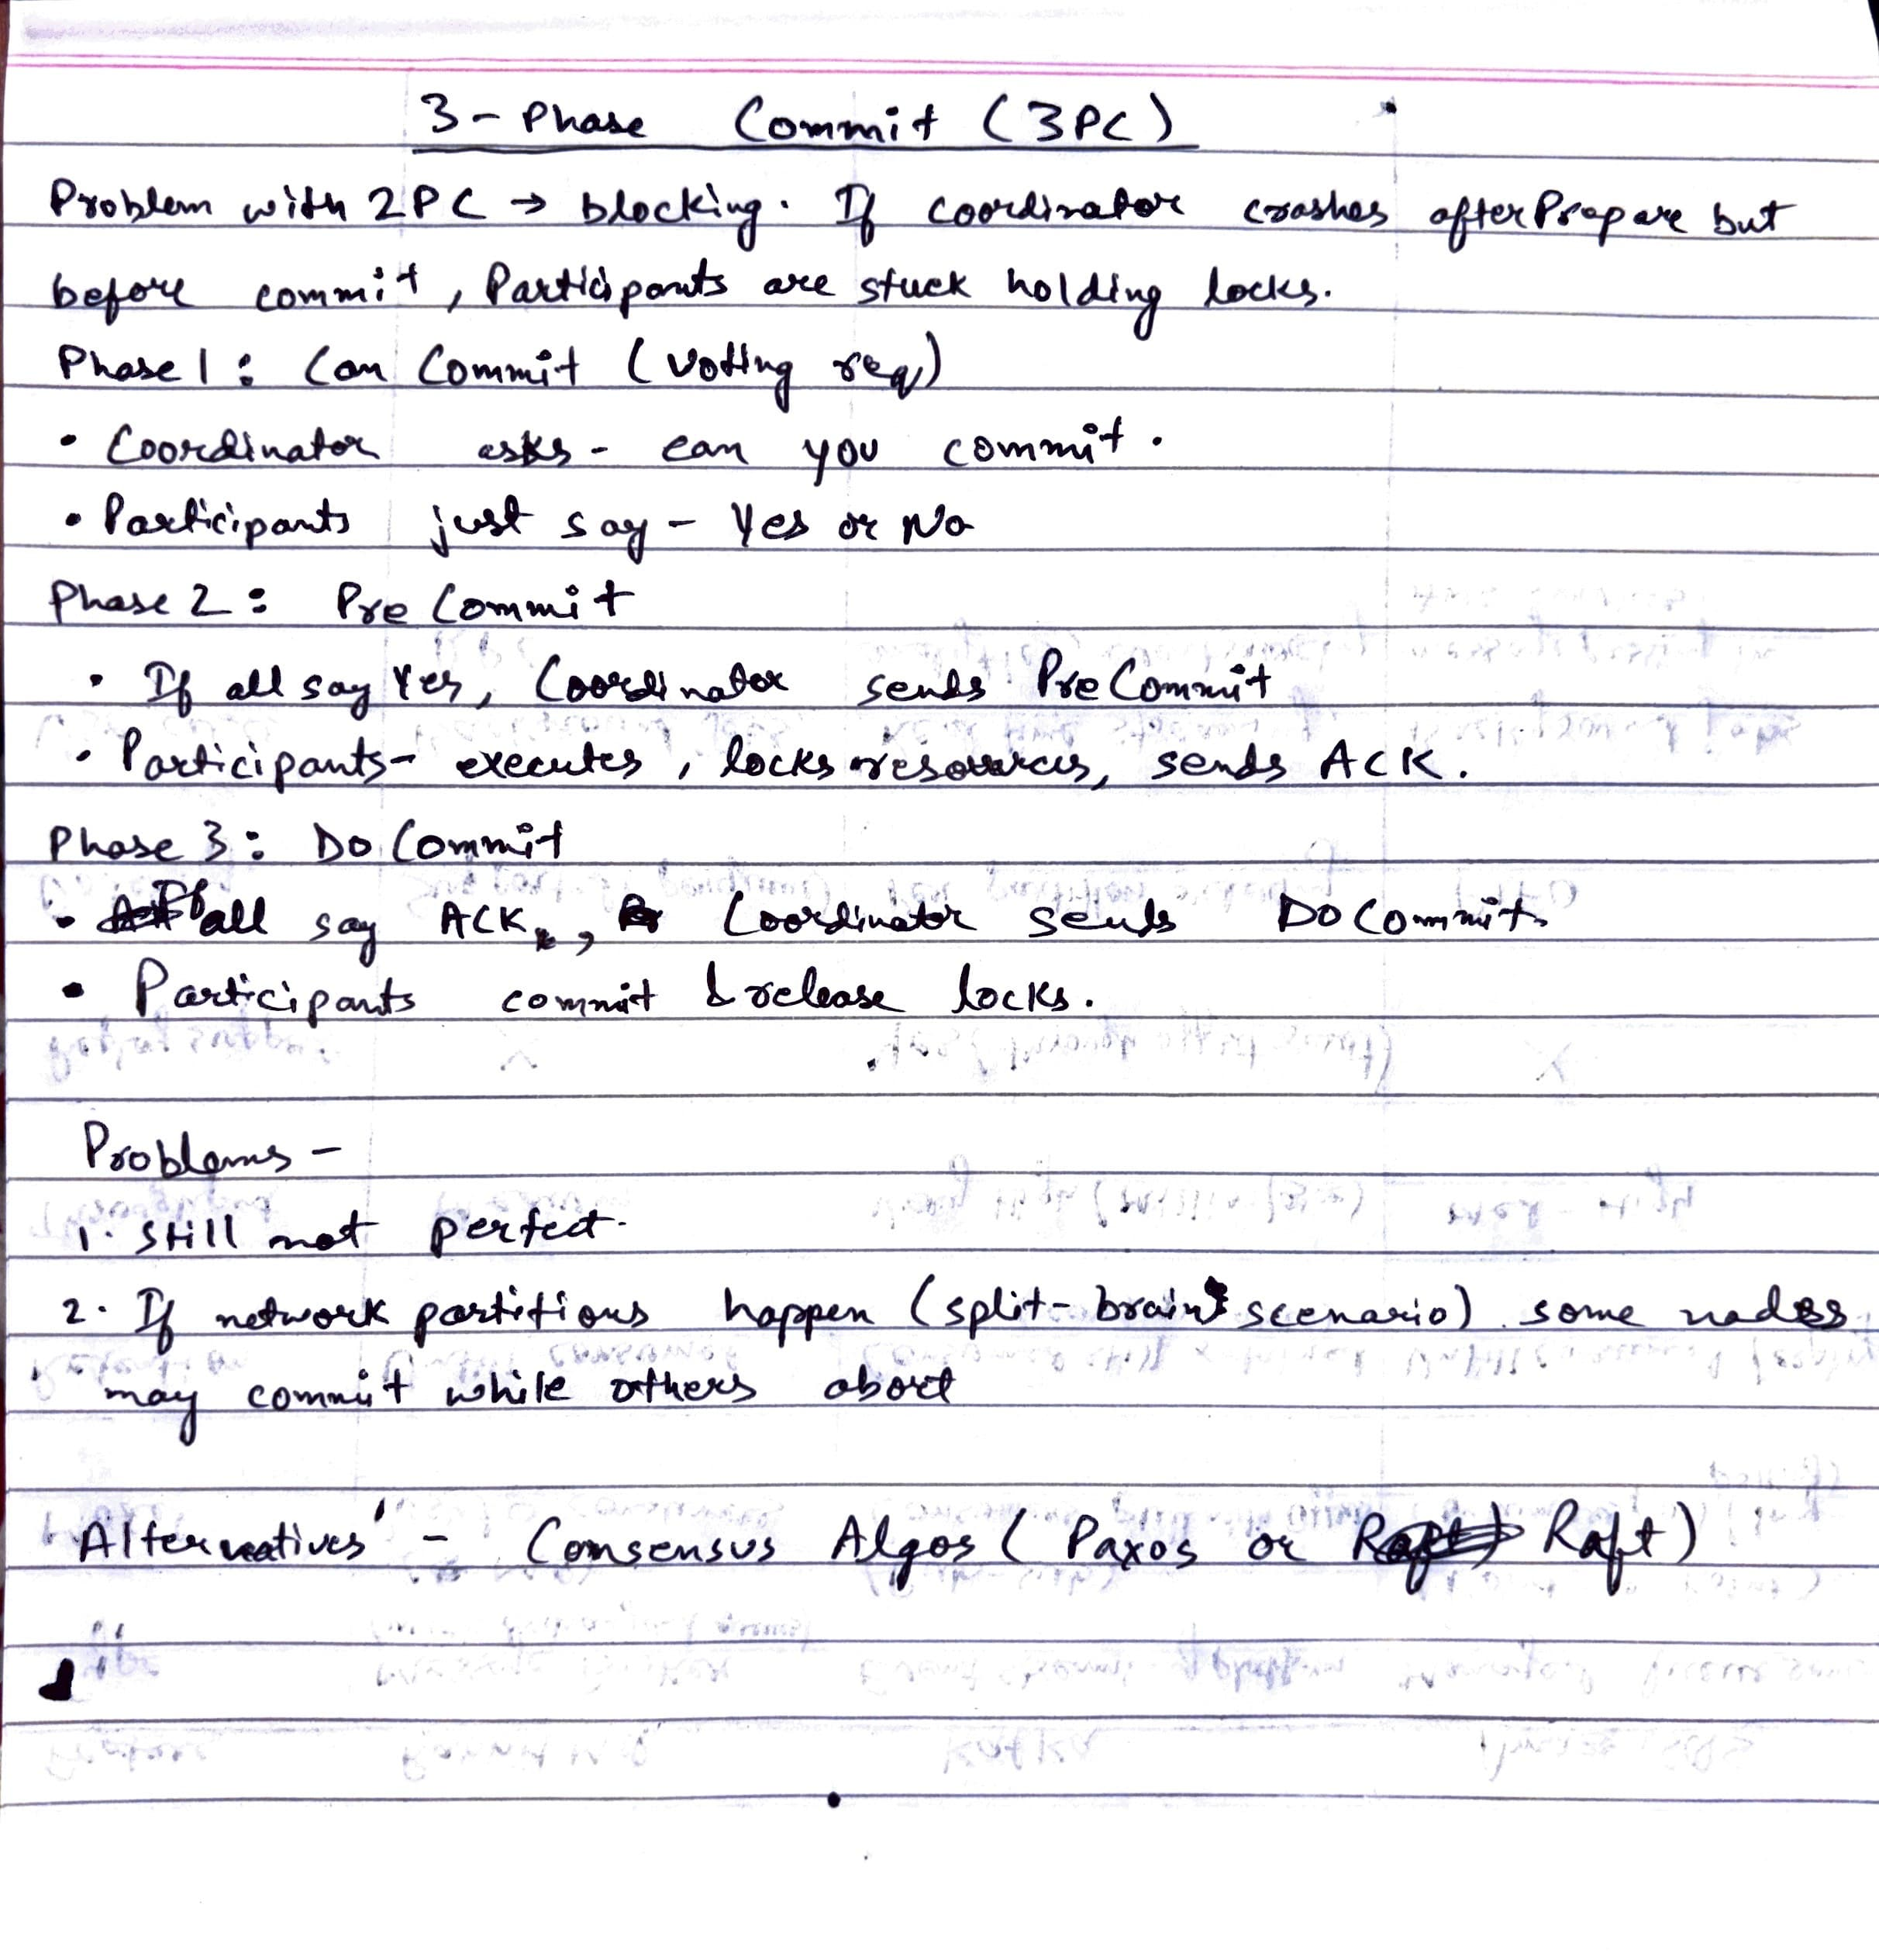 3-Phase Commit (3PC)
Problem with 2PC → blocking. If coordinator crashes after Prepare but
before commit, Participants are stuck holding locks.
Phase 1: Can Commit (Voting req)
• Coordinator asks - can you commit.
• Participants just say - Yes or No
Phase 2: Pre Commit
• If all say Yes, Coordinator sends PreCommit
• Participants - executes, locks resources, sends ACK.
Phase 3: Do Commit
• If all say ACK, Coordinator sends DoCommit.
• Participants commit & release locks.
Problems -
1. Still not perfect.
2. If network partitions happen (split-brain scenario) some nodes
may commit while others abort
Alternatives - Consensus Algos (Paxos or Raft)